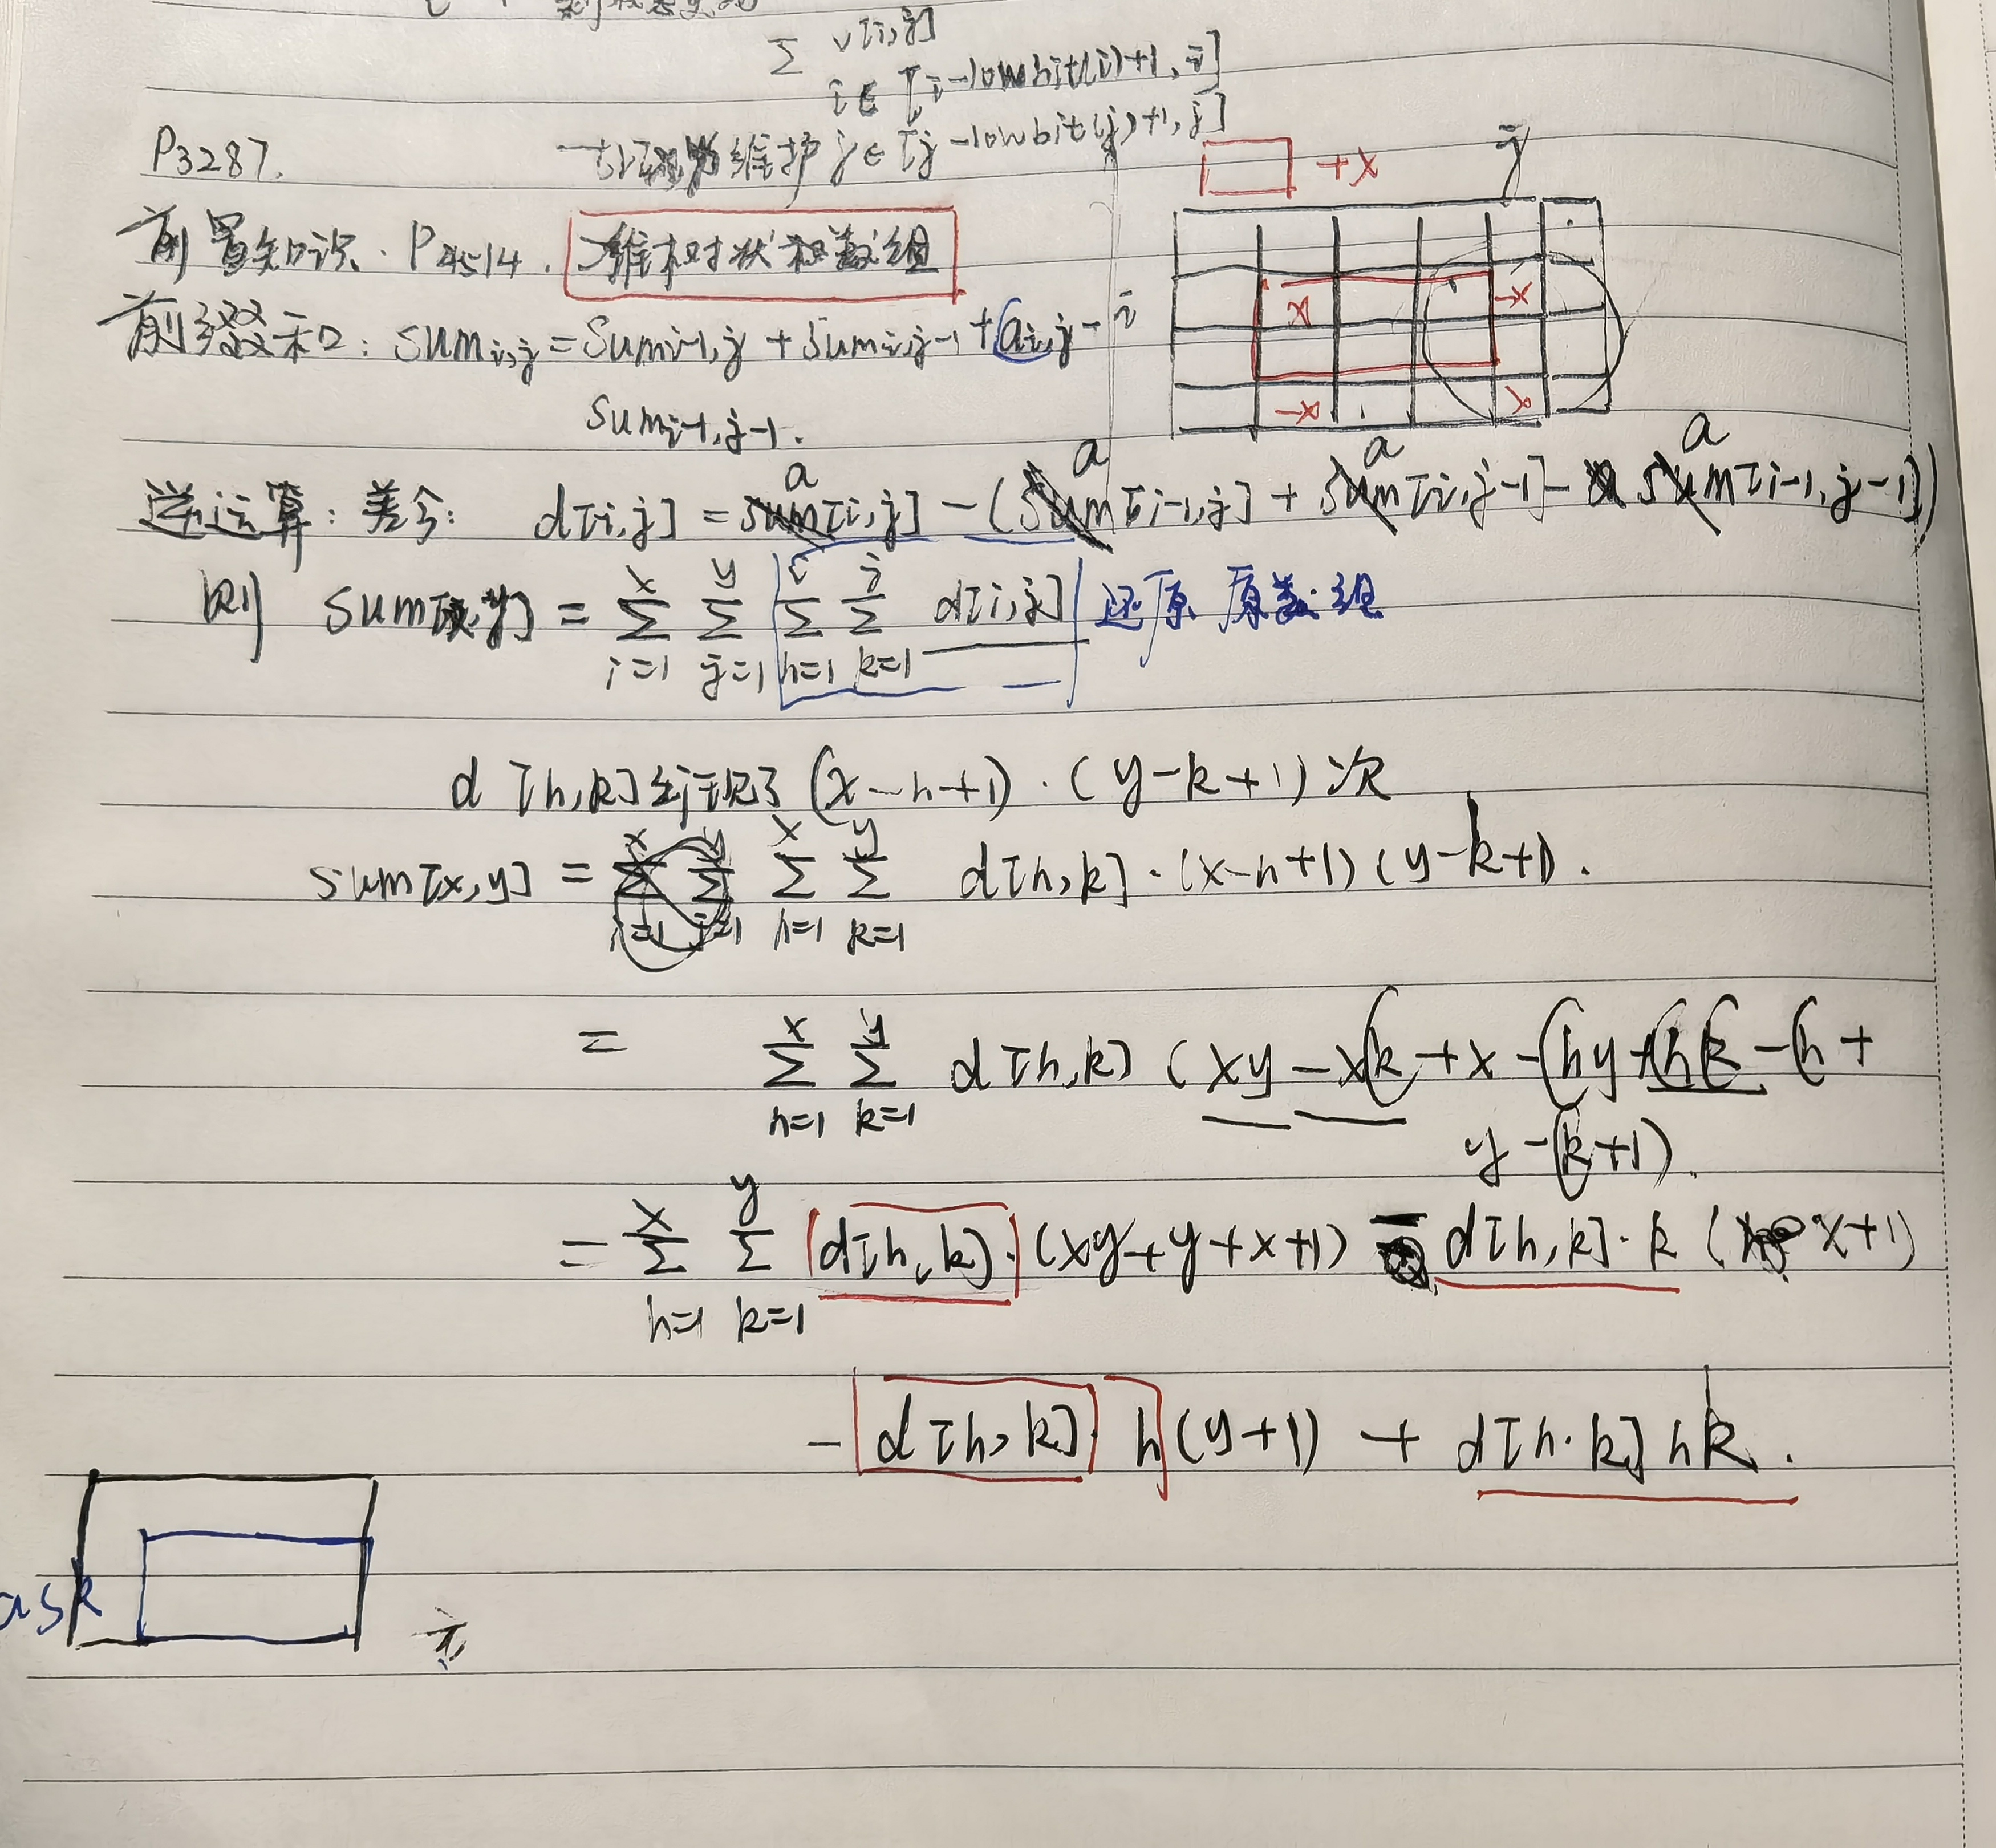 Σ v[i,j]
i∈[i-lowbit(i)+1,i]
维护 j∈[j-lowbit(j)+1,j]
P3287.
+x
j
前置知识. P4514. 二维树状数组
前缀和: sum i,j = sum i-1,j + sum i,j-1 + a i,j -
sum i-1,j-1.
i
x -x
-x x
a a a a
逆运算: 差分: d[i,j] = sum[i,j] - (sum[i-1,j] + sum[i,j-1] - sum[i-1,j-1])
则 sum[x,y] = Σ(i=1..x) Σ(j=1..y) Σ(h=1..i) Σ(k=1..j) d[i,j] 还原 原数组
d[h,k]出现了 (x-h+1)·(y-k+1)次
sum[x,y] = Σ(i=1..x) Σ(j=1..y) Σ(h=1..x) Σ(k=1..y) d[h,k]·(x-h+1)(y-k+1).
= Σ(h=1..x) Σ(k=1..y) d[h,k] (xy-xk+x-hy+hk-h+
y-k+1).
= Σ(h=1..x) Σ(k=1..y) d[h,k]·(xy+y+x+1) - d[h,k]·k (x+1)
- d[h,k]·h(y+1) + d[h·k]hk.
ask